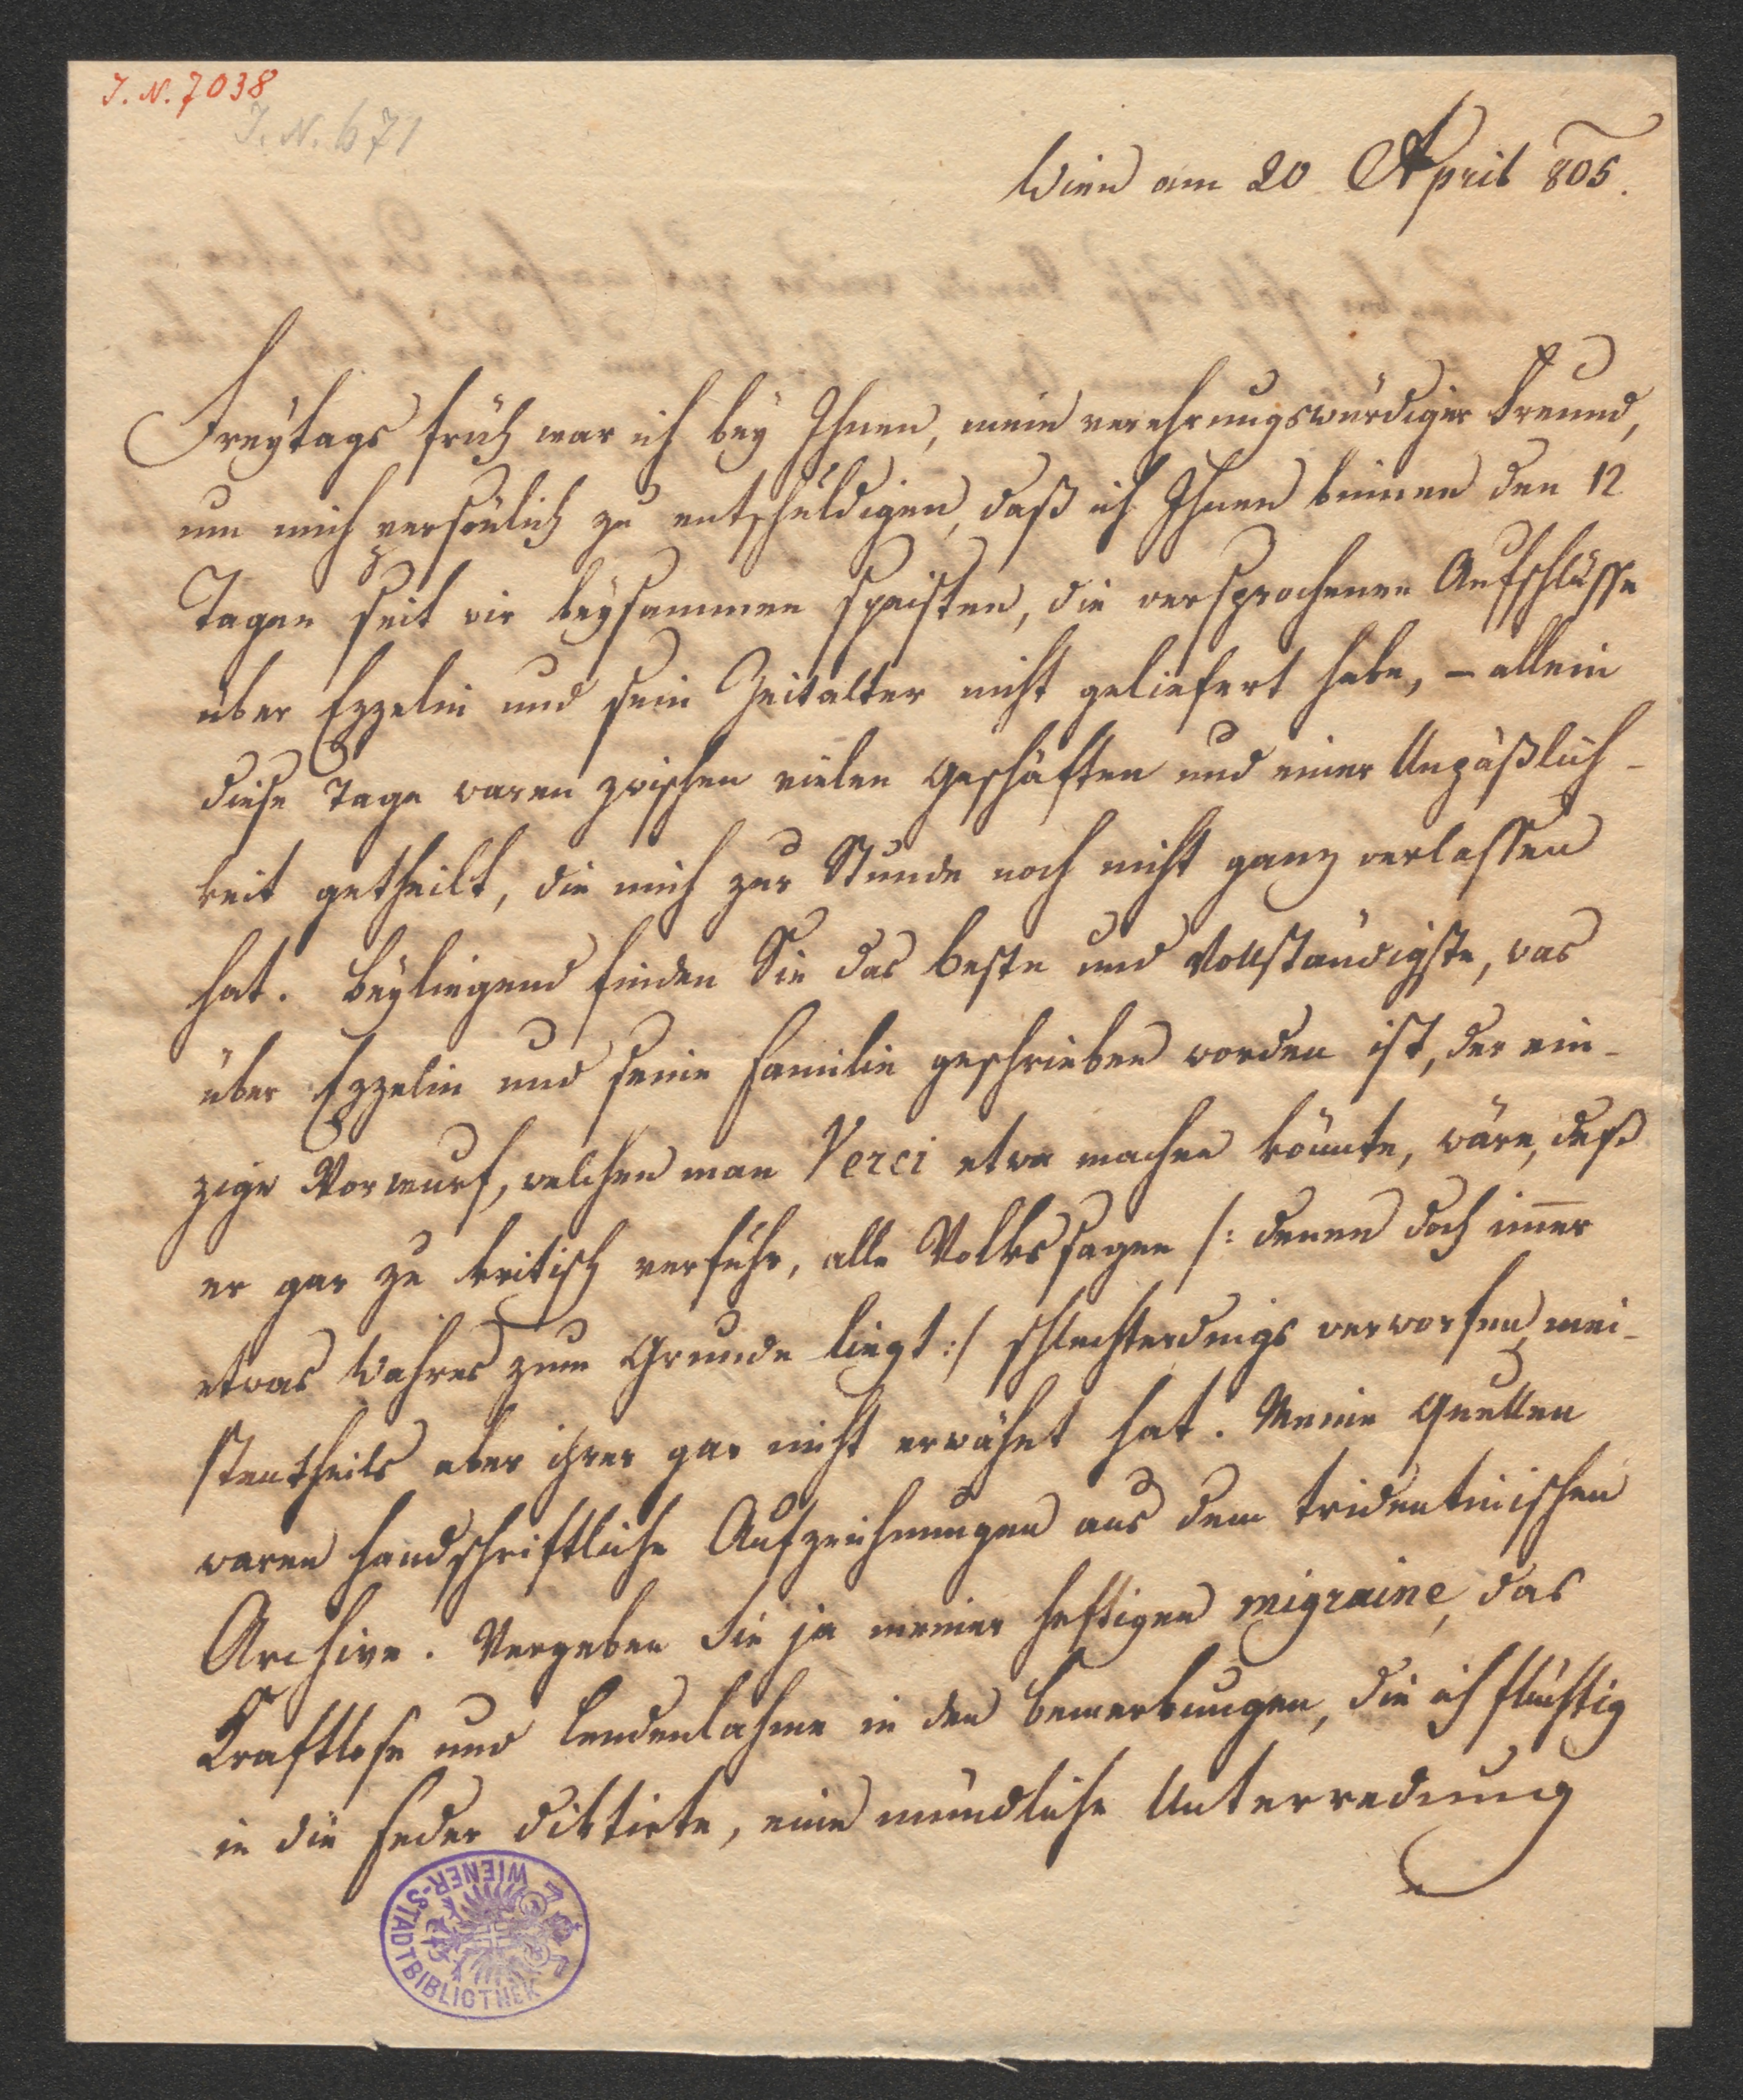 J. N. 7038
J. N. 671
Wien am 20 April 805.
Freytags früh war ich bey Ihnen, mein verehrungswürdiger Freund,
um mich persönlich zu entschuldigen, daß ich Ihnen binnen den 12
Tagen seit wir beysammen speisten, die versprochenen Aufschlüsse
über Ezzelin und sein Zeitalter nicht geliefert habe, – allein
diese Tage waren zwischen vielen Geschäften und einer Unpäßlich-
keit getheilt, die mich zur Stunde noch nicht ganz verlassen
hat. Beyliegend finden Sie das beste und Vollständigste, was
über Ezzelin und seine Familie geschrieben worden ist, der ein-
zige Vorwurf, welchen man Verci etwa machen könnte, wäre, daß
er gar zu kritisch verfuhr, alle Volkssagen /: denen doch im̅er
etwas Wahres zum Grunde liegt :/ schlechterdings verworfen, mei-
stentheils aber ihrer gar nicht erwähnt hat. Meine Quellen
waren handschriftliche Aufzeichnungen aus dem tridentinischen
Archive. Vergeben Sie ja meiner heftigen migraine, das
Kraftlose und Lendenlahme in den Bemerkungen, die ich flüchtig
in die Feder diktirte, eine mündliche Unterredung
WIENER-STADTBIBLIOTHEK